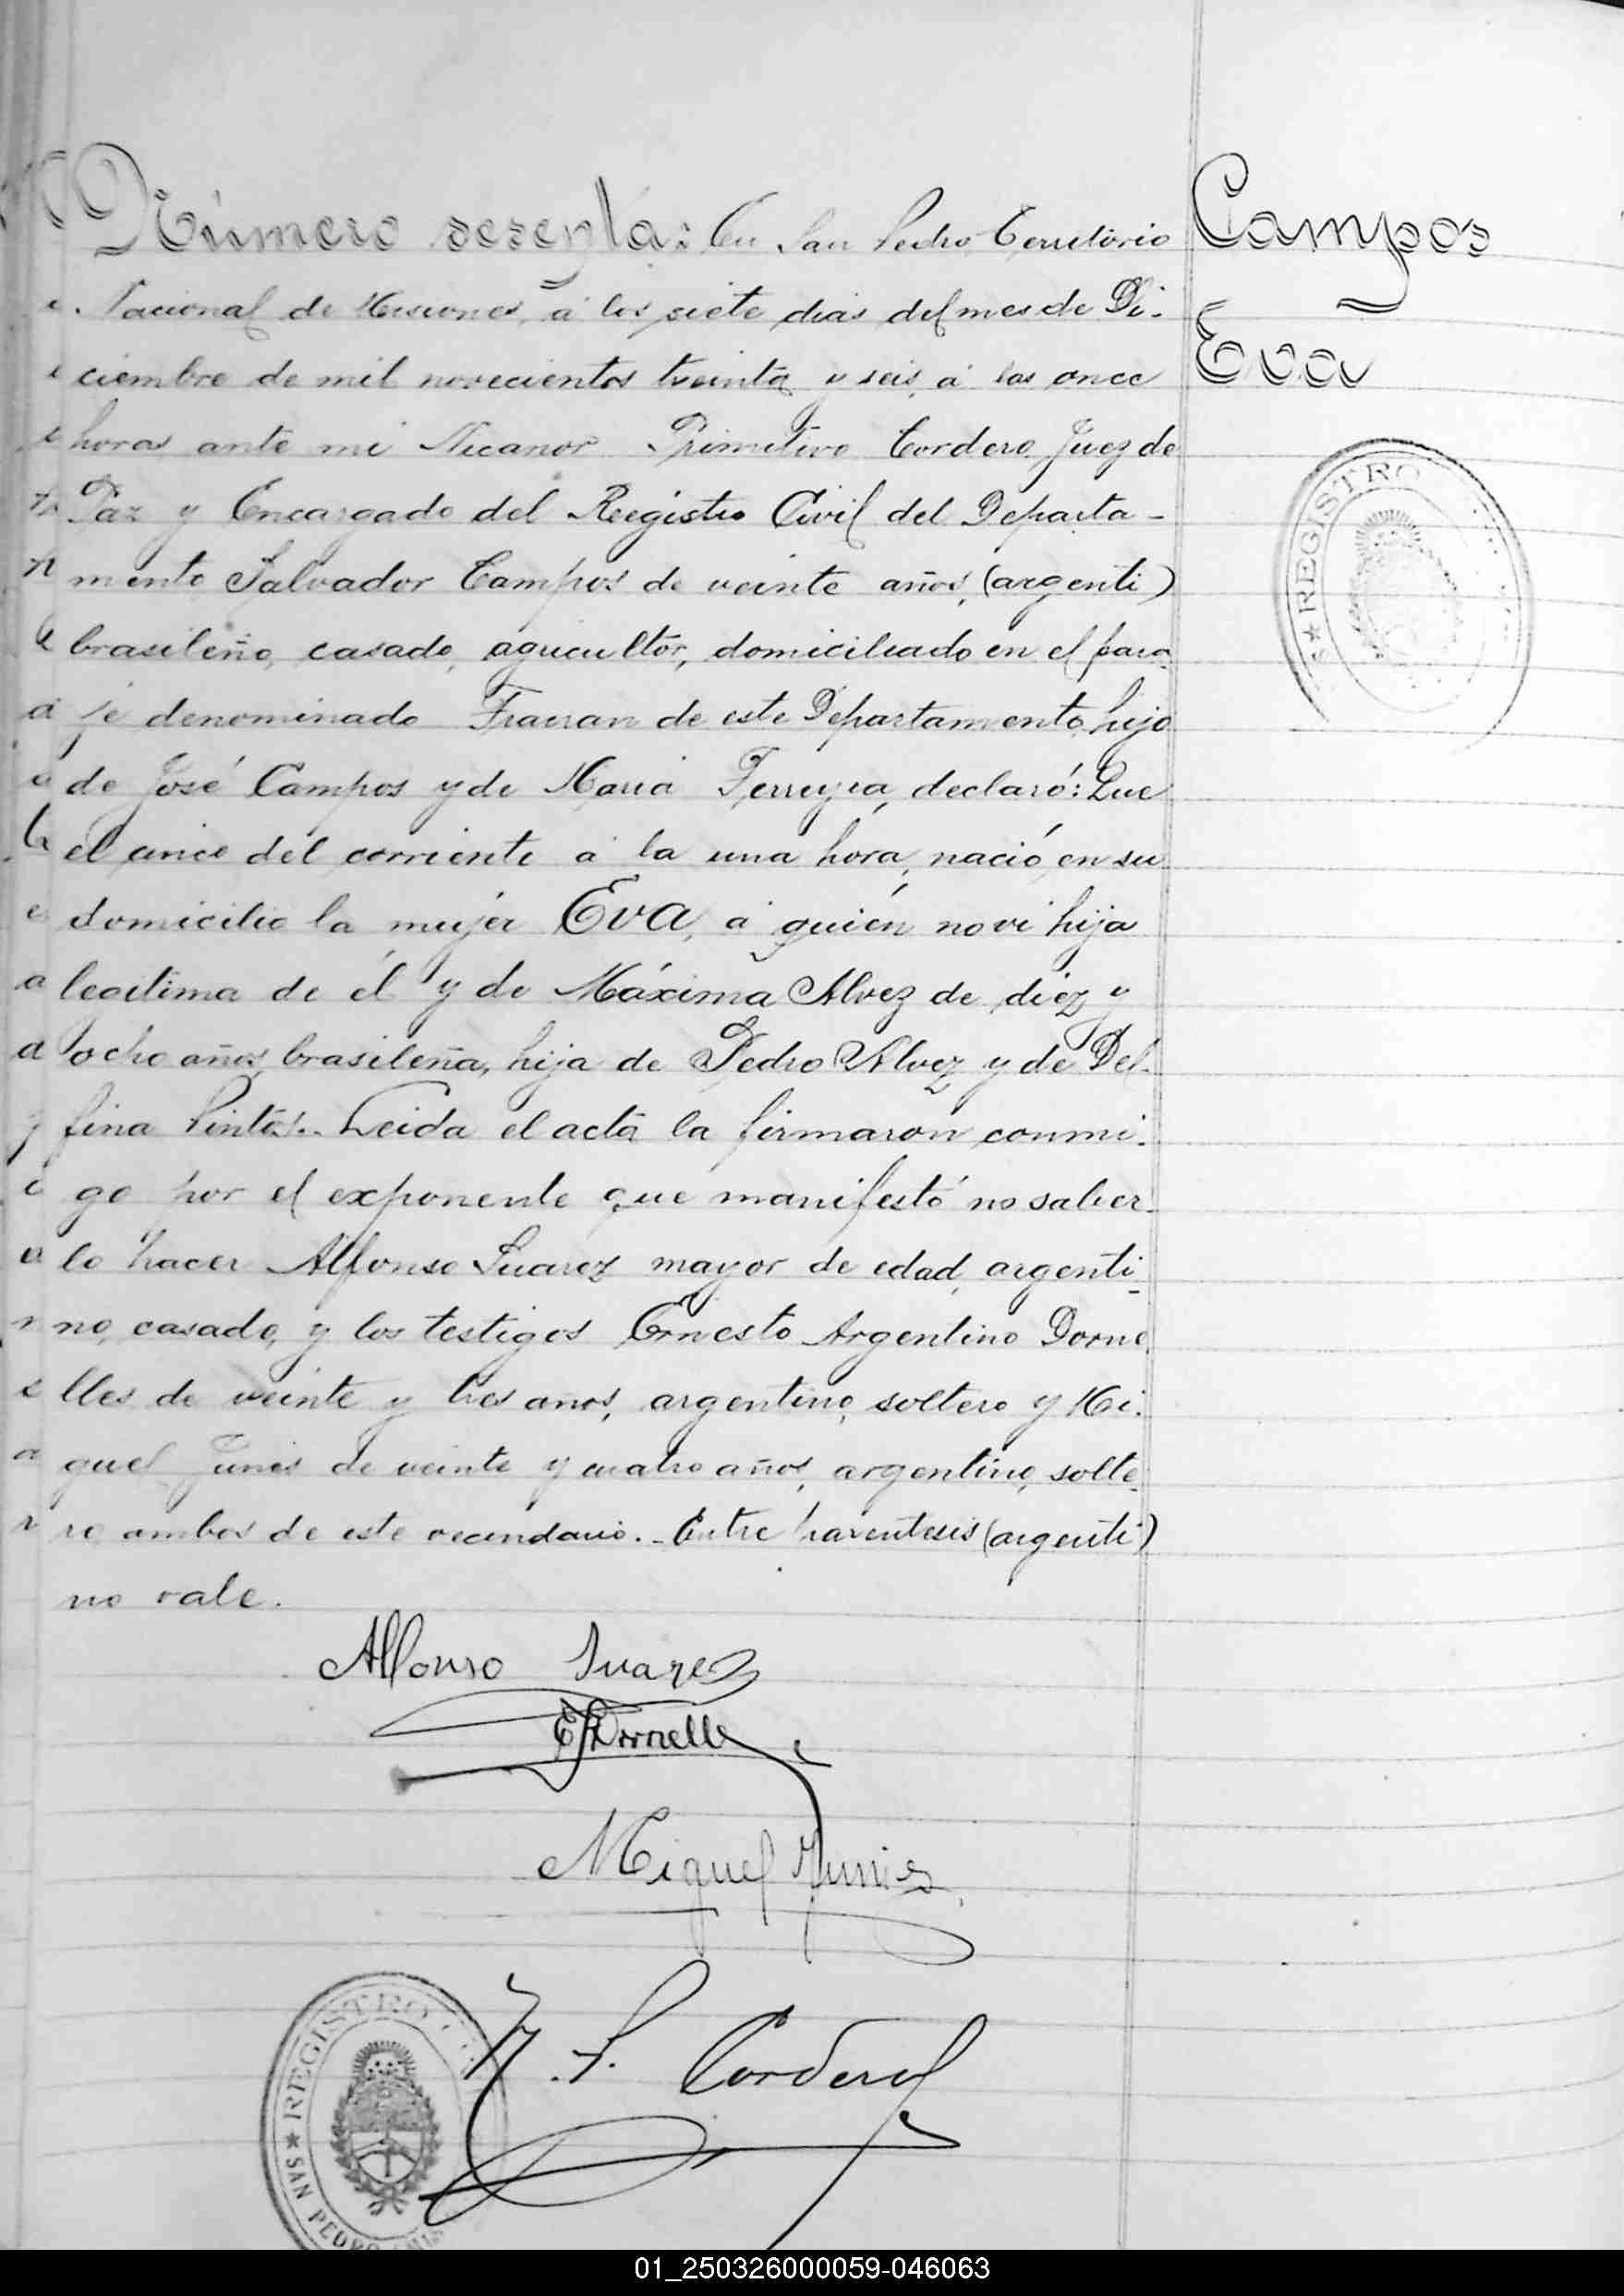 Número sesenta: En San Pedro, Territorio
Nacional de Misiones, á los siete dias del mes de Di-
ciembre de mil novecientos treinta y seis, á las once
horas ante mi Nicanor Primitivo Cordero, Juez de
Paz y Encargado del Registro Civil del Departa-
mento Salvador Campos de veinte años, (argenti)
brasileño, casado, agricultor, domiciliado en el para
je denominado Fracran de este Departamento, hijo
de José Campos y de Maria Ferreyra, declaró: Que
el cinco del corriente á la una hora, nació en su
domicilio la mujer Eva, á quién no vi hija
legitima de él y de Máxima Alvez de diez y
ocho años, brasileña, hija de Pedro Alvez y de Del-
fina Pintos.- Leida el acta la firmaron conmi-
go por el exponente que manifestó no saber-
lo hacer Alfonso Suarez mayor de edad, argenti-
no, casado, y los testigos Ernesto Argentino Dorne
lles de veinte y tres años, argentino, soltero y Mi-
guel Junis de veinte y cuatro años, argentino, solte-
ro, ambos de este vecindario.- Entre parentesis (argenti)
no vale.
Campos
Eva
REGISTRO
Alfonso Suarez
E A Dornelle
Miguel Junis
N. P. Cordero
REGISTRO
SAN PEDRO
01_250326000059-046063